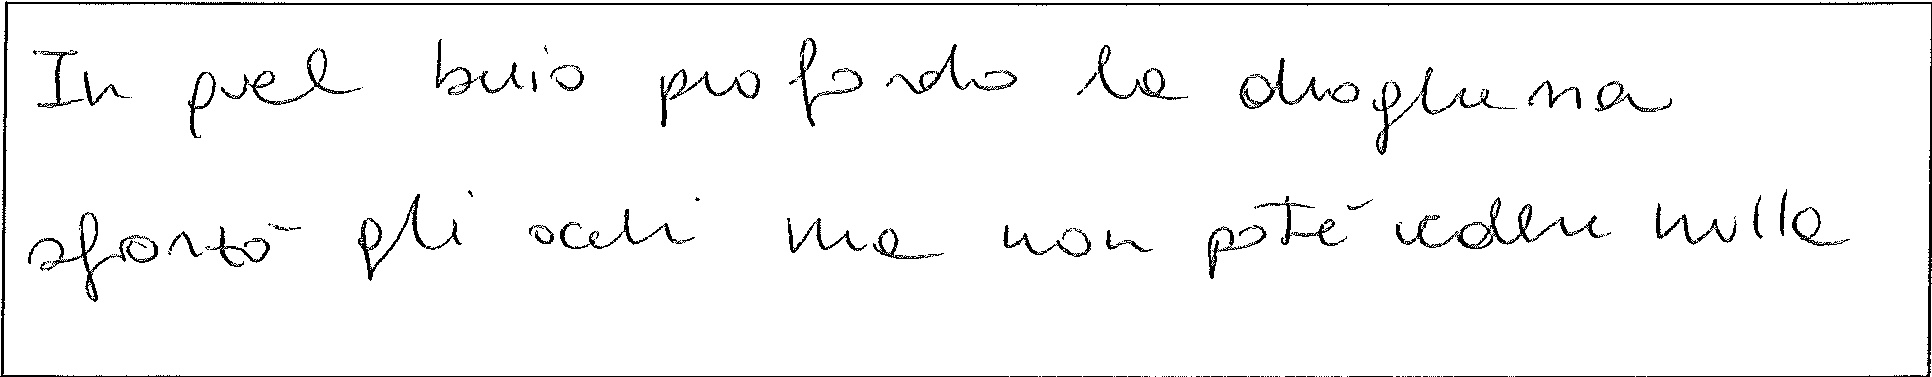 In quel buio profondo la droghiera
sforzò gli occhi ma non poté vedere nulla